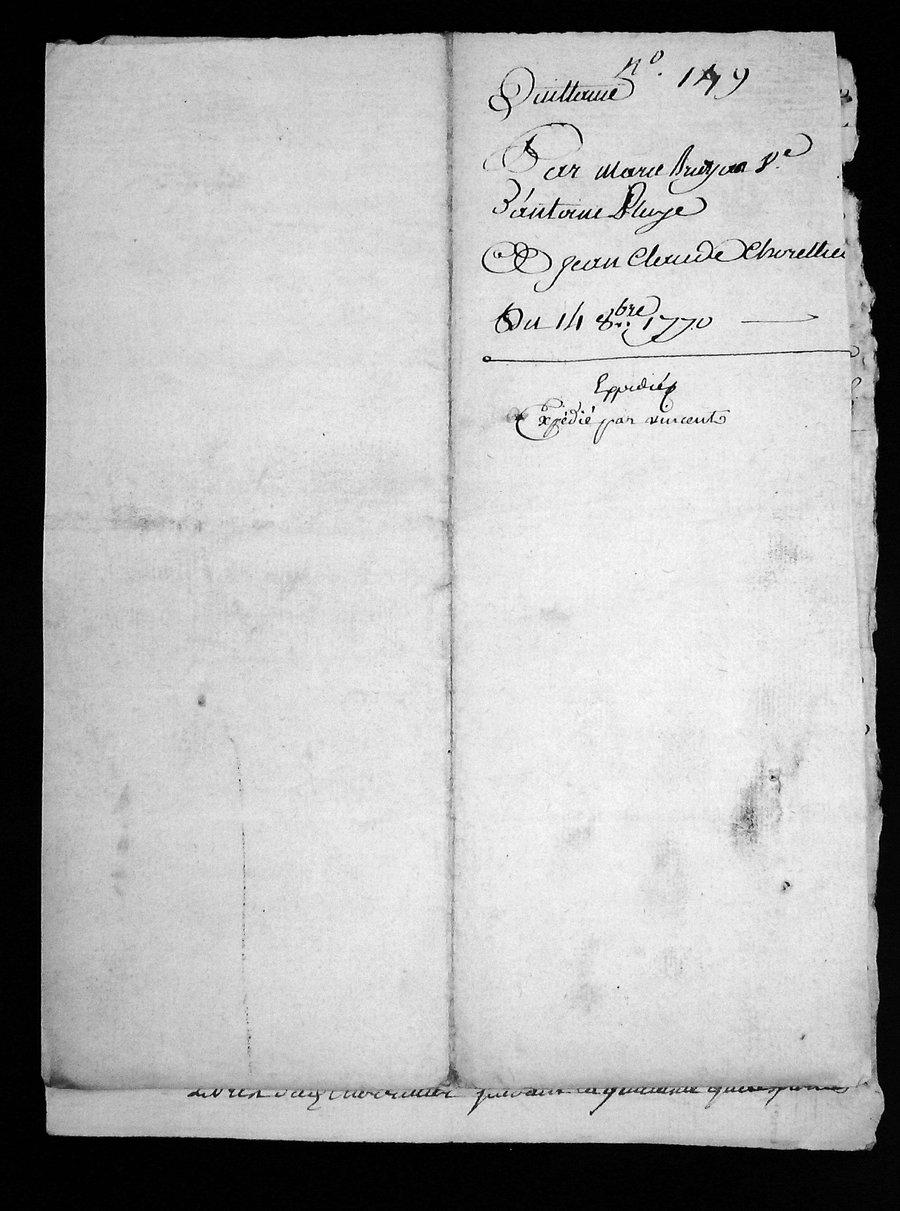 n°. 119
Quittance
Par marie Bruyas Ve
d'antoine Pluye
a jean Claude Chorellier
Du 14 8bre 1770
Expédié
Expédié par vincent